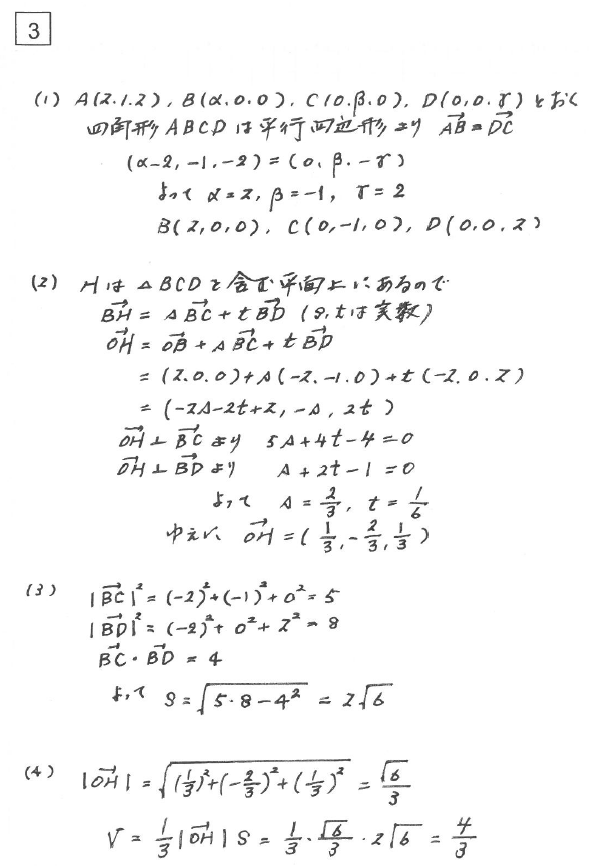 3
(1) A(2.1.2), B(α,0.0), C(0.β.0), D(0,0.γ)とおく
四角形ABCDは平行四辺形より AB→=DC→
(α-2,-1.-2)=(0,β.-γ)
よって α=2,β=-1, γ=2
B(2,0,0), C(0,-1,0), D(0.0.2)
(2) Hは△BCDを含む平面上にあるので
BH→=sBC→+tBD→ (s,tは実数)
OH→=OB→+sBC→+tBD→
=(2.0.0)+s(-2.-1.0)+t(-2.0.2)
=(-2s-2t+2,-s,2t)
OH→⊥BC→より 5s+4t-4=0
OH→⊥BD→より s+2t-1=0
よって s=2/3, t=1/6
ゆえに、OH→=(1/3,-2/3,1/3)
(3) |BC→|²=(-2)²+(-1)²+0²=5
|BD→|²=(-2)²+0²+2²=8
BC→・BD→=4
よって S=√(5・8-4²)=2√6
(4) |OH→|=√((1/3)²+(-2/3)²+(1/3)²)=√6/3
V=1/3|OH→|S=1/3・√6/3・2√6=4/3